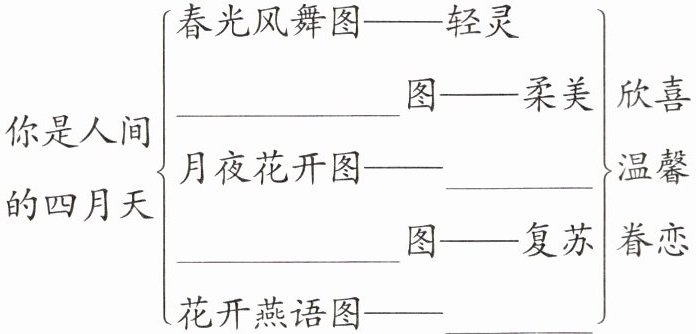 你是人间
的四月天
春光风舞图——轻灵
____________图——柔美
月夜花开图——________
____________图——复苏
花开燕语图——________
欣喜
温馨
眷恋